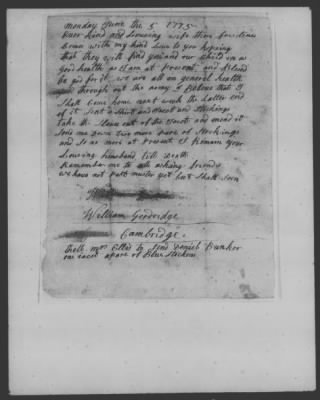 monday June the 5 1775
Dear Kind and Loveing wife these few lines
Comes with my kind Love to you hopeing
that they will find you and our Children in as
good health as I am at present and blessed
be god for it we are all in general health
throo out the army I beleve that I
Shall Come home next week the Latter end
of it Sent a Shirt and and Stockings
take the Sleaves out of the and mend it
Send me down two more pare of Stockings
and So no more at present I Remain your
Loveing husband till Death
Remember me to all asking friends
we have not past muster yet but Shall soon
William Gooridge
Cambridge.
Tell mrs Ellis to Send Daniel Bunker
one a pare of Blue Stockens